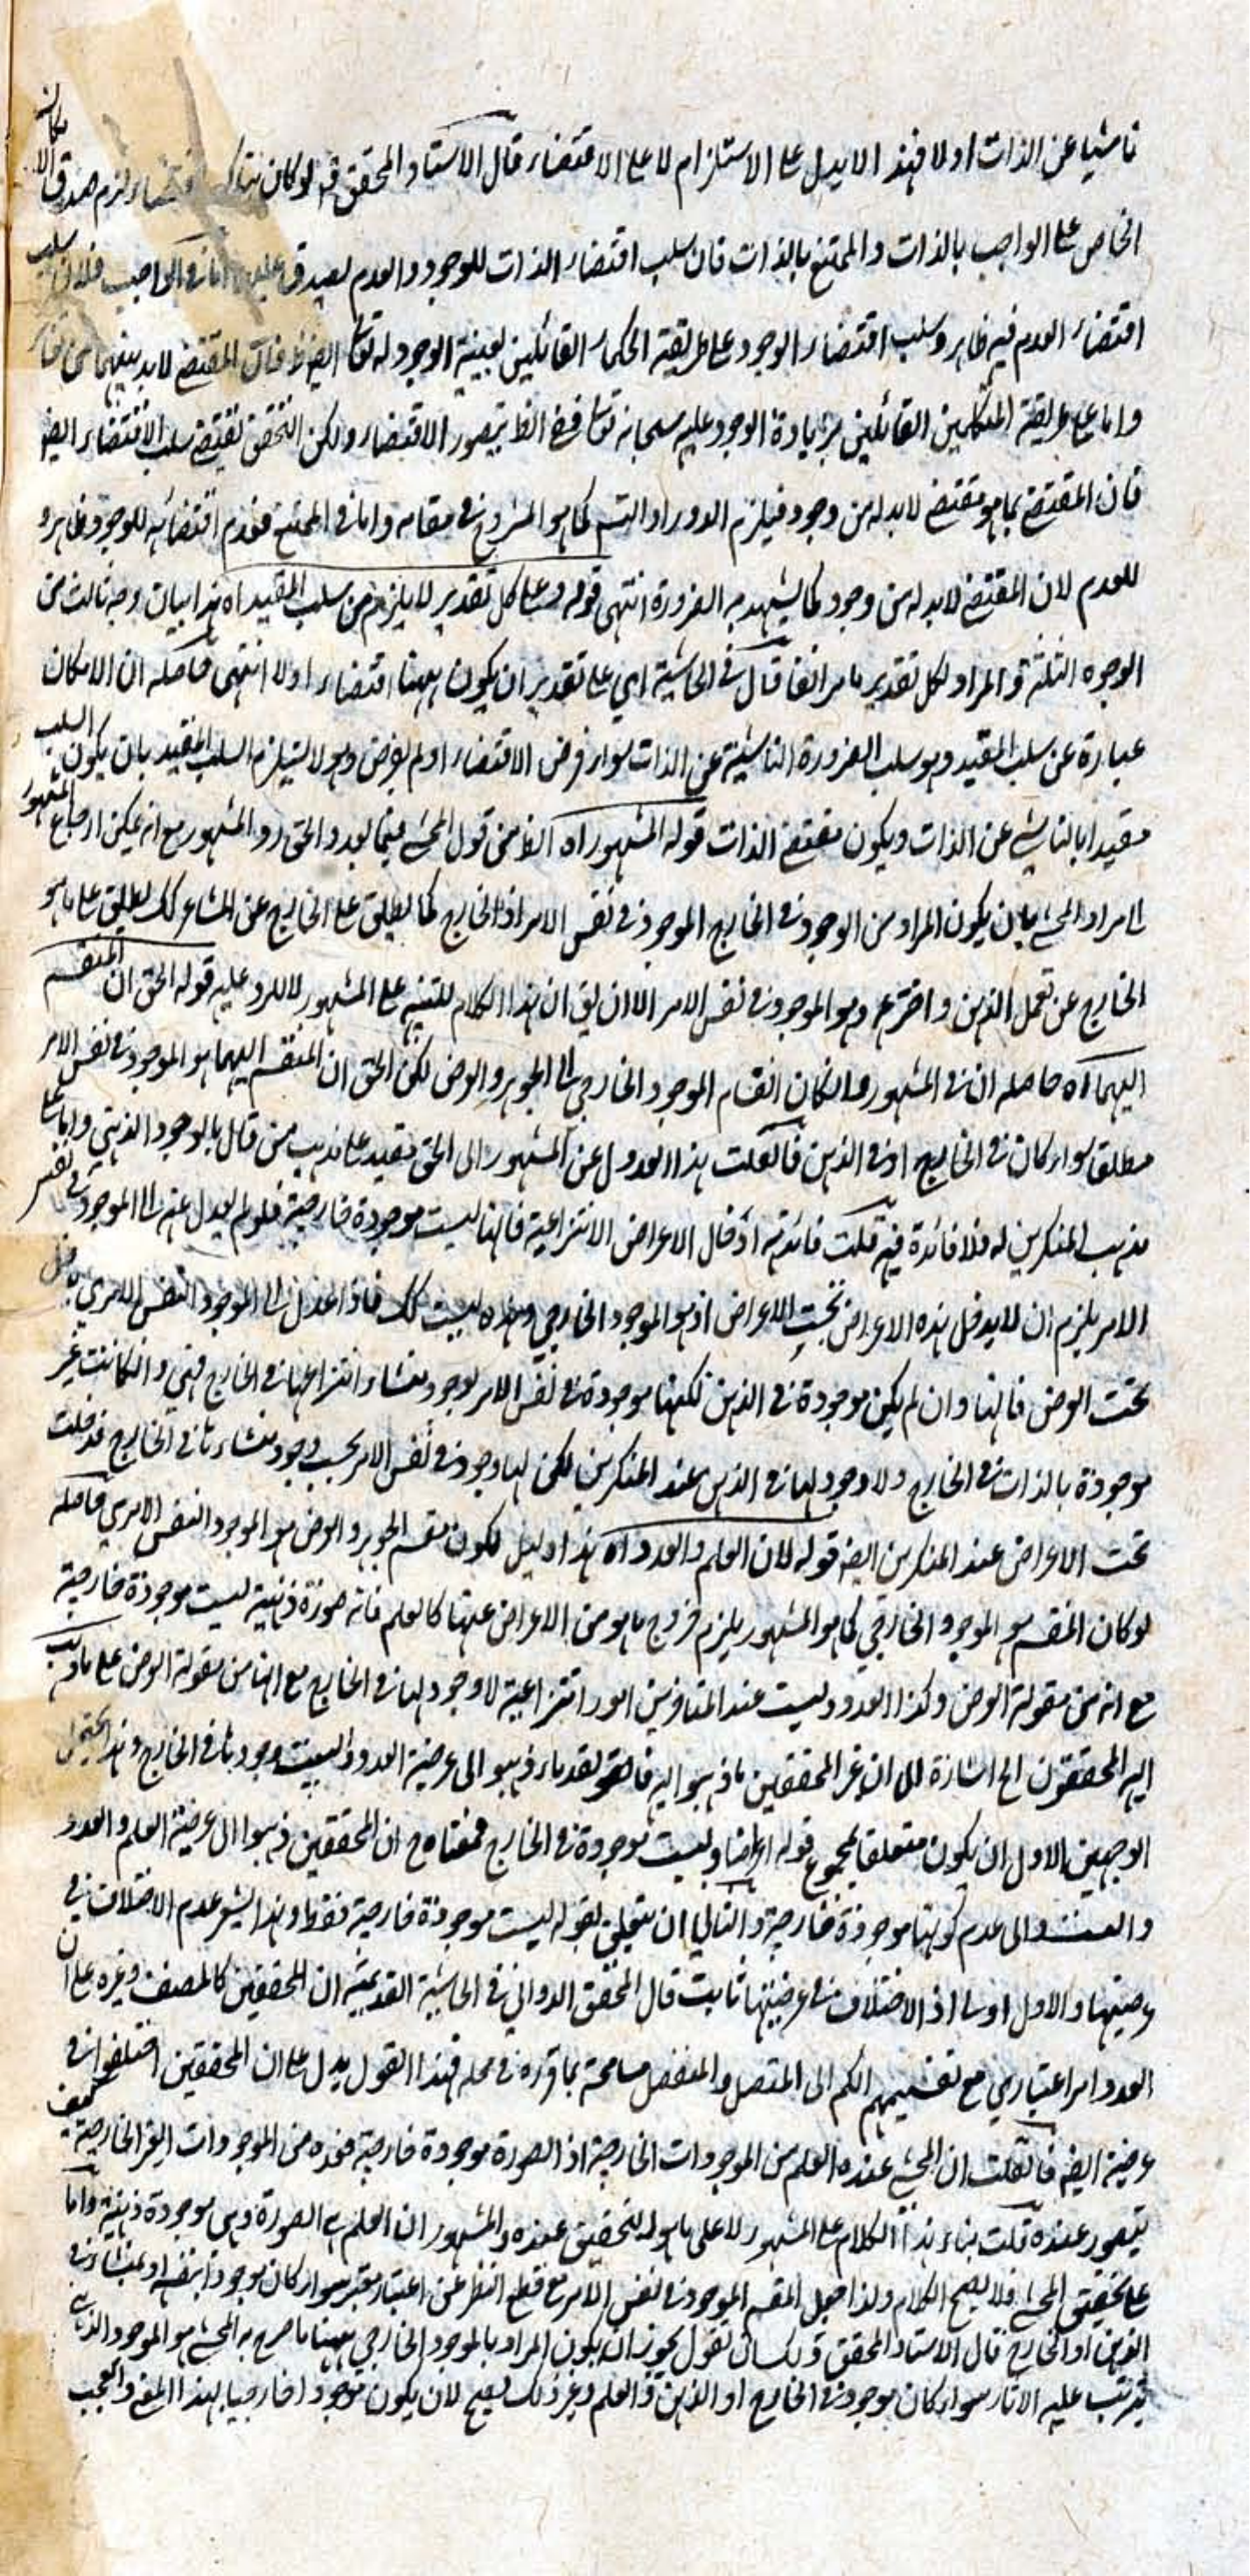 ناشيا عن الذات او لا فهذا لا يدل على الاستلزام لا على الاقتضاء قال الاستاد المحقق قه لو كان هناك اقتضاء لزم صدق الامكان
الخاص على الواجب بالذات والممتنع بالذات فان سلب اقتضاء الذات للوجود والعدم يصدق عليهما اما في الواجب فلان سلب
اقتضاء العدم فيه ظاهر وسلب اقتضاء الوجود على طريقة الحكماء القائلين بعينية الوجود له تعا ايض ظ فان المقتضى لابد بينهما من تغاير
واما على طريقة المتكلمين القائلين بزيادة الوجود عليه سبحانه تعا ففي الظ يتصور الاقتضاء ولكن التحقق يقتضي سلب الاقتضاء ايض
فان المقتضي بما هو مقتضى لابد له من وجود فيلزم الدور او التسم كما هو المشروح في مقامه واما في الممتنع فعدم اقتضائه للوجود ظاهر و
للعدم لان المقتضي لابد له من وجود كما يشهد به الضرورة انتهى قوله وعلى كل تقدير لا يلزم من سلب المقيد اه هذا بيان وجه ثالث من
الوجوه الثلثة والمراد لكل تقدير ما مر انفا قال في الحاشية اي على تقدير ان يكون ههنا اقتضاء او لا انتهى فحاصله ان الامكان
عبارة عن سلب المقيد وهو سلب الضرورة الناشئة عن الذات سواء فرض الاقتضاء او لم يفرض وهو لا يستلزم السلب المقيد بان يكون السلب
مقيدا بالناشي عن الذات ويكون مقتضى الذات قوله المشهور اه الظ من قول المحشي فيما بعد والحق رد المشهور مع انه يمكن ارجاع المشهور
الى مراد المحشي بان يكون المراد من الوجود في الخارج الموجود في نفس الامر اذ الخارج كما يطلق على الخارج عن المشاعر كك يطلق على ما هو
الخارج عن تعمل الذهن واختراعه وهو الموجود في نفس الامر الا ان يق ان هذا الكلام للتنبيه على المشهور لا للرد عليه قوله الحق ان المنقسم
اليهما اه حاصله ان في المشهور وان كان انقسام الموجود الخارجي الى الجوهر والعرض لكن الحق ان المنقسم اليهما هو الموجود في نفس الامر
مطلقا سواء كان في الخارج او في الذهن فان قلت هذا العدول عن المشهور الى الحق مفيد على مذهب من قال بالوجود الذهني واما على
مذهب المنكرين له فلا فائدة فيه قلت فائدته ادخال الاعراض الانتزاعية فانها ليست موجودة خارجية فلو لم يعدل عنه الى الموجود في نفس
الامر يلزم ان لا يدخل هذه الاعراض تحت الاعراض اذ هو الموجود الخارجي وهذه ليست كك فاذا عدل الى الموجود النفس الامري يدخل
تحت العرض فانها وان لم يكن موجودة في الذهن لكنها موجودة في نفس الامر لوجود منشاء انتزاعها في الخارج فهي وان كانت غير
موجودة بالذات في الخارج ولا وجود لها في الذهن عند المنكرين لكن لها وجود في نفس الامر بحسب وجود منشاء ها في الخارج فدخلت
تحت الاعراض عند المنكرين ايض قوله لان العلم والعدد اه هذا دليل لكون مقسم الجوهر والعرض هو الموجود النفس الامري حاصله
لو كان المنقسم هو الموجود الخارجي كما هو المشهور يلزم خروج ما هو من الاعراض عنها كالعلم فانه صورة ذهنية ليست موجودة خارجية
مع انه من مقولة العرض وكذا العدد وليست عند المتاخرين امور انتزاعية لا وجود لها في الخارج مع انها من مقولة العرض على ما ذهب
اليه المحققون الخ اشارة الى ان غير المحققين ما ذهبوا اليه فالقدماء ذهبوا الى عرضية العدد والبيت وجودها في الخارج وهذا يحتمل
الوجهين الاول ان يكون متعلقا بمجموع قوله اعراضا وليست موجودة في الخارج فمعناه ح ان المحققين ذهبوا الى عرضية العلم والعدد
والى عدم كونها موجودة خارجية والثاني ان يتعلق بقوله ليست موجودة خارجية فقط وهذا يشعر عدم الاختلاف في
عرضيتها والاول اولى اذ الاختلاف في عرضيتها ثابت قال المحقق الدواني في الحاشية القديمة ان المحققين كالمصنف وغيره على ان
العدد امر اعتباري مع تقسيمهم الكم الى المتصل والمنفصل مسامحة بما قرره في محله فهذا القول يدل على ان المحققين اختلفوا في
عرضية ايض فان قلت ان المحشي عنده العلم من الموجودات الخارجية اذ الصورة موجودة خارجية فعده من الموجودات الغير الخارجية كيف
يتصور عنده قلت بناء هذا الكلام على المشهور لا على ما هو التحقيق عنده والمشهور ان العلم هي الصورة وهي موجودة ذهنية واما
على تحقيق المحشي فلا يصح الكلام ولذا جعل المقسم الموجود في نفس الامر مع قطع النظر عن اعتبار معتبر سواء كان موجودا بنفسه او بمنشائه في
الذهن او الخارج قال الاستاد المحقق ولك ان تقول يجوز ان يكون المراد بالموجود الخارجي ههنا ما صرح به المحشي هو الموجود الذي
يترتب عليه الاثار سواء كان موجود في الخارج او الذهن والعلم وغير ذلك يصح لان يكون موجودا خارجيا بهذا المعنى والعجب